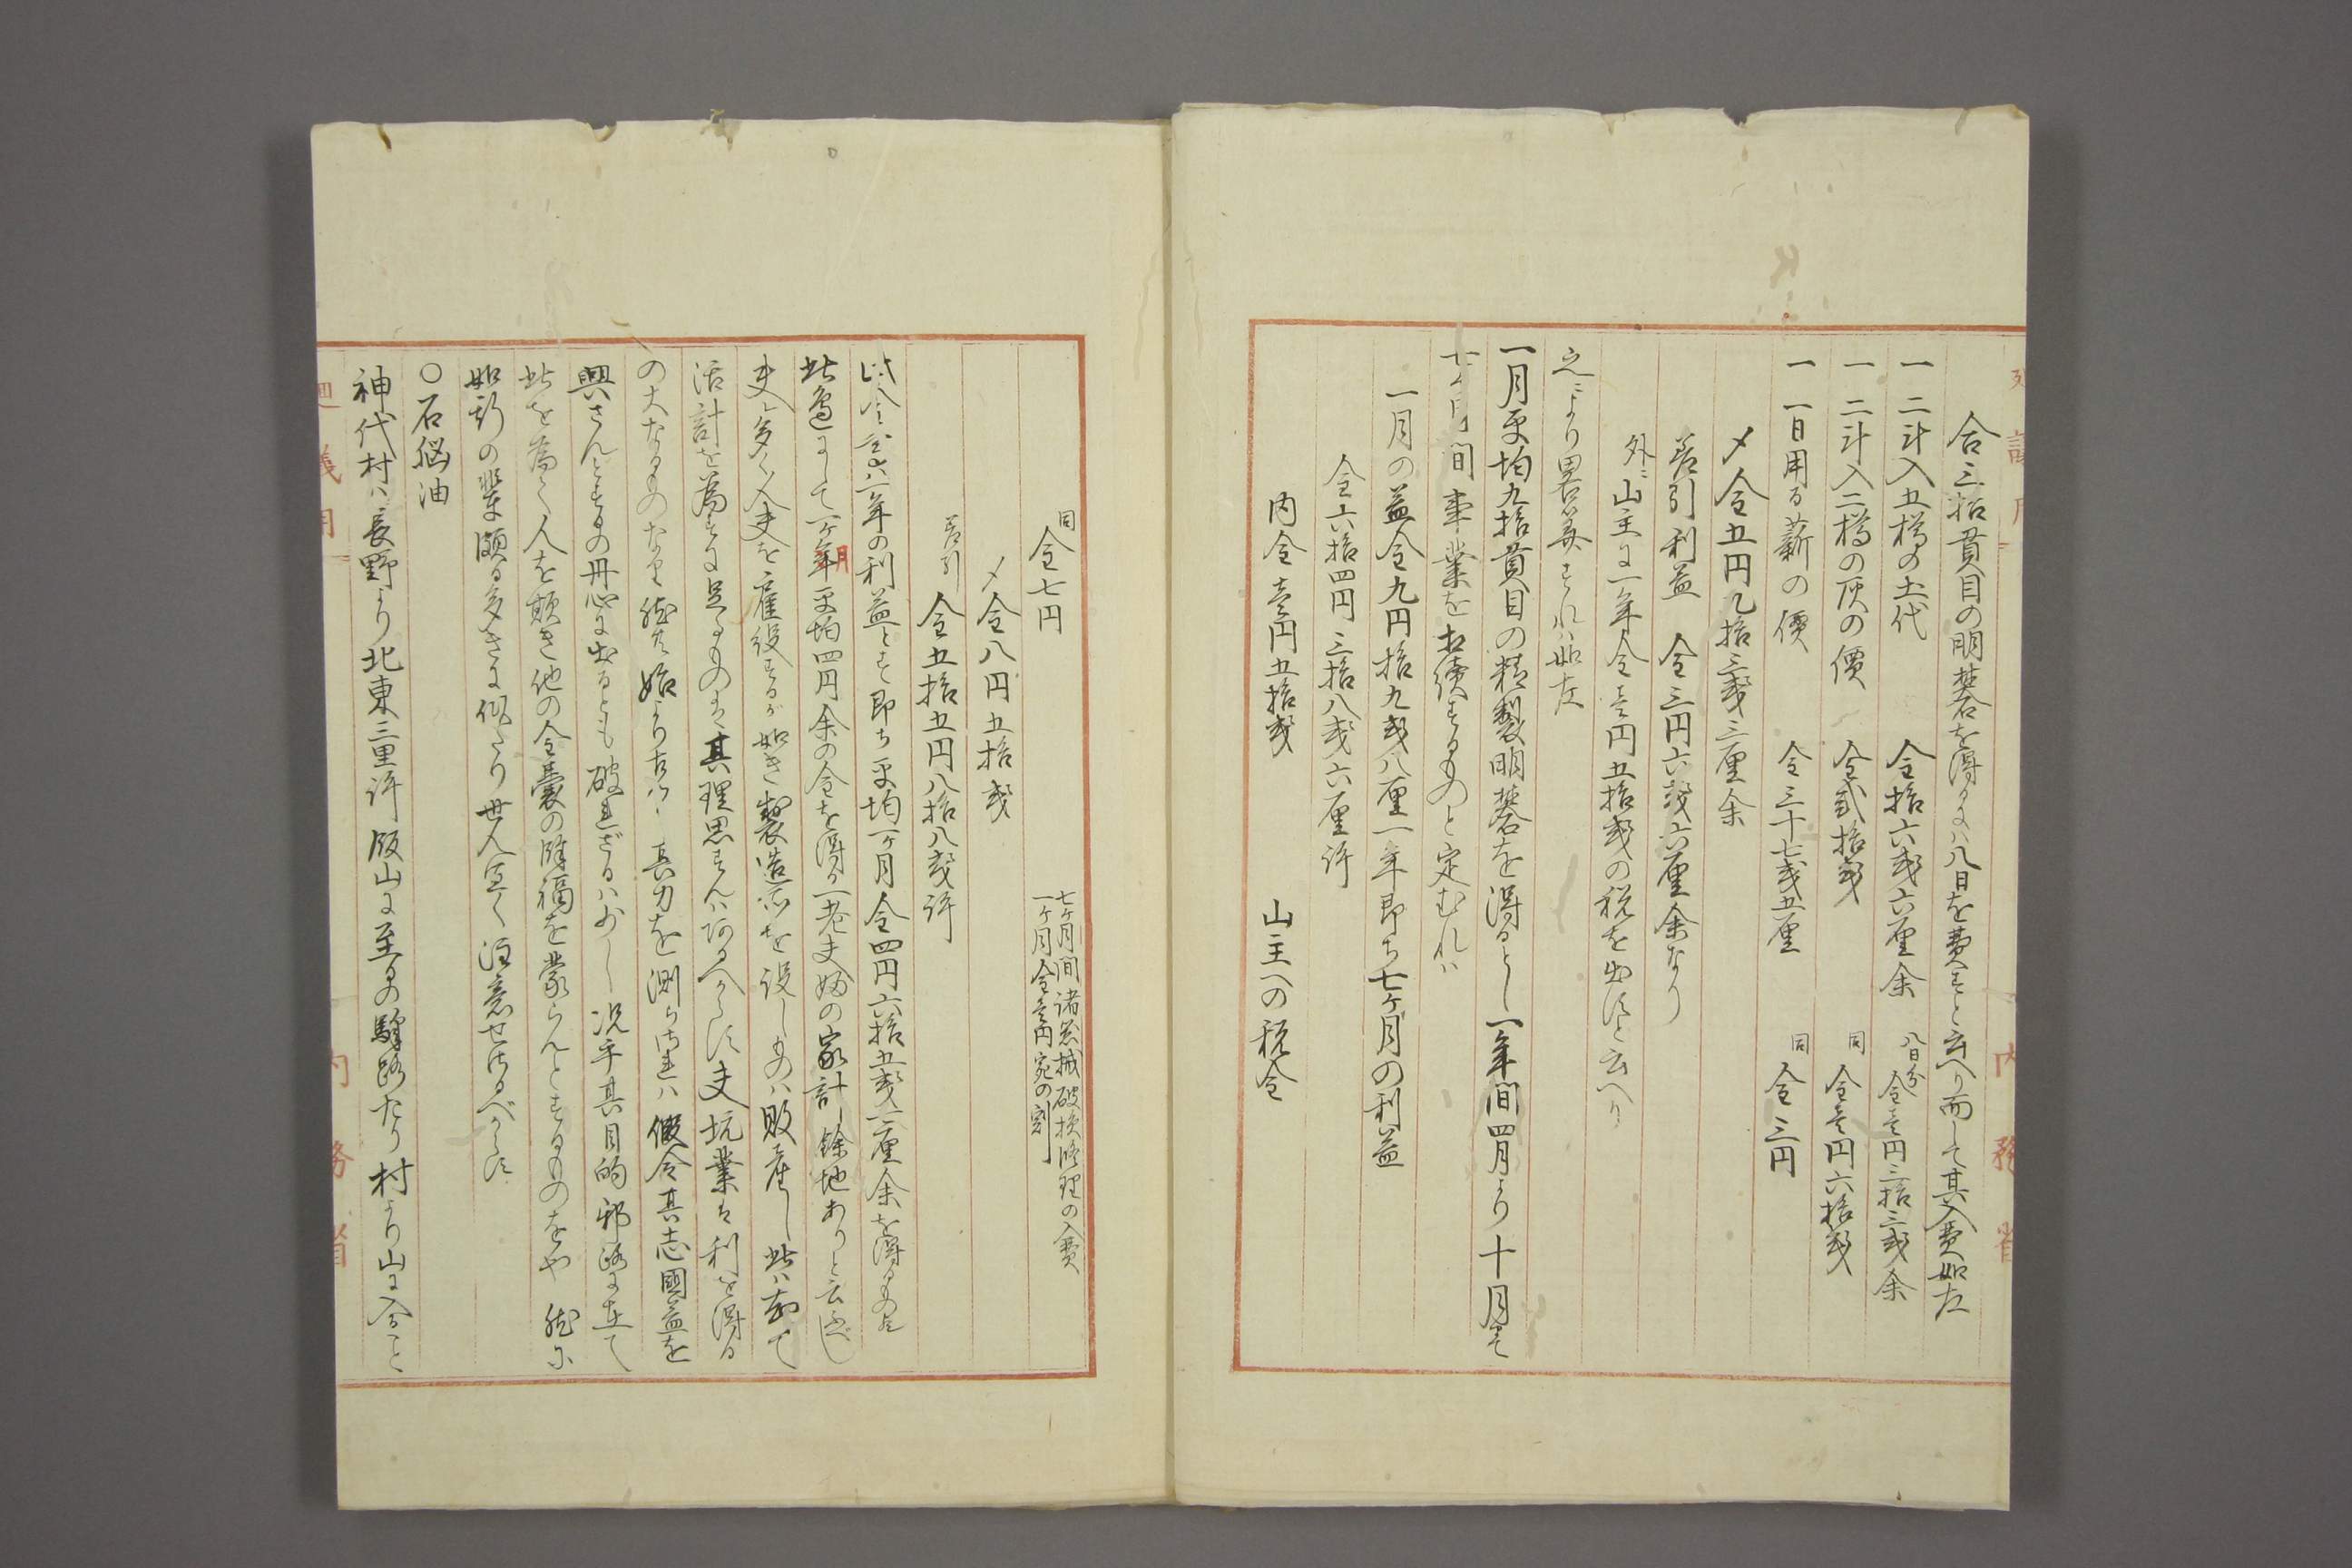 合三拾貫目の明礬を得るには八日を費すと云へり而して其入費如左
一 二斗入五樽の土代 金拾六銭六厘余 八日分 金壱円三拾三銭余
一 二斗入二樽の灰の價 金弐拾銭 同 金壱円六拾銭
一 一日用る薪の價 金三十七銭五厘 同 金三円
〆金五円九拾三銭三厘余
差引利益 金三円六銭六厘余なり
外ニ山主に一年金壱円五拾銭の税を出すと云へり
之により畧算すれは如左
一月平均九拾貫目の精製明礬を得るとし一年間四月より十月まて
七ヶ月間事業を相續するものと定むれは
一月の益金九円拾九銭八厘一年即ち七ヶ月の利益
金六拾四円三拾八銭六厘許
内金壱円五拾銭 山主への税金
同 金七円 七ヶ月間諸器械破損修理の入費
一ヶ月金壱円宛の割
〆金八円五拾銭
差引 金五拾五円八拾八銭許
此金全く一年の利益とす即ち平均一ヶ月金四円六拾五銭二厘余を得るもの也
此邊にして一ヶ年平均四円余の金を得る一老夫婦の家計餘地ありと云べし
月
夫れ多く人夫を雇役するが如き製造所を設しものは敗産し此は却て
活計を為すに足るものは其理思すんはあるべからす夫坑業は利を得る
の大なるものなり然共始より其力を測らされは假令其志國益を
興さんとするの丹心に出るとも破れざるは少し况乎其目的邪路に在て
此を為して人を欺き他の金嚢の降福を蒙らんとするものをや然るに
如斯の輩頗る多きに似たり世人宜く注意せさるべからす
○石脳油
神代村は長野より北東三里許飯山に至るの驛路たり村より山に入こと
内務省
内務省